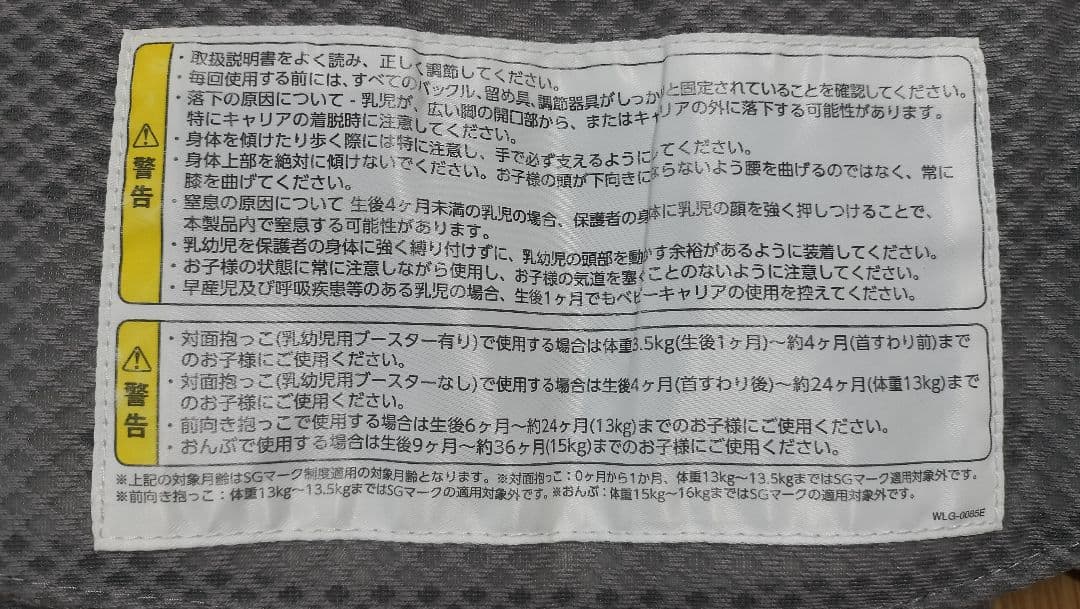 警告
・取扱説明書をよく読み、正しく調節してください。
・毎回使用する前には、すべてのバックル、留め具、調節器具がしっかりと固定されていることを確認してください。
・落下の原因について - 乳児が、広い脚の開口部から、またはキャリアの外に落下する可能性があります。
特にキャリアの着脱時に注意してください。
・身体を傾けたり歩く際には特に注意し、手で必ず支えるようにしてください。
・身体上部を絶対に傾けないでください。お子様の頭が下向きにならないよう腰を曲げるのではなく、常に
膝を曲げてください。
・窒息の原因について 生後4ヶ月未満の乳児の場合、保護者の身体に乳児の顔を強く押しつけることで、
本製品内で窒息する可能性があります。
・乳幼児を保護者の身体に強く縛り付けずに、乳幼児の頭部を動かす余裕があるように装着してください。
・お子様の状態に常に注意しながら使用し、お子様の気道を塞ぐことのないように注意してください。
・早産児及び呼吸疾患等のある乳児の場合、生後1ヶ月でもベビーキャリアの使用を控えてください。
警告
・対面抱っこ(乳幼児用ブースター有り)で使用する場合は体重3.5kg(生後1ヶ月)〜約4ヶ月(首すわり前)まで
のお子様にご使用ください。
・対面抱っこ(乳幼児用ブースターなし)で使用する場合は生後4ヶ月(首すわり後)〜約24ヶ月(体重13kg)まで
のお子様にご使用ください。
・前向き抱っこで使用する場合は生後6ヶ月〜約24ヶ月(13kg)までのお子様にご使用ください。
・おんぶで使用する場合は生後9ヶ月〜約36ヶ月(15kg)までのお子様にご使用ください。
※上記の対象月齢はSGマーク制度適用の対象月齢となります。※対面抱っこ：0ヶ月から1か月、体重13kg〜13.5kgまではSGマーク適用対象外です。
※前向き抱っこ：体重13kg〜13.5kgまではSGマークの適用対象外です。※おんぶ：体重15kg〜16kgまではSGマークの適用対象外です。
WLG-0085E